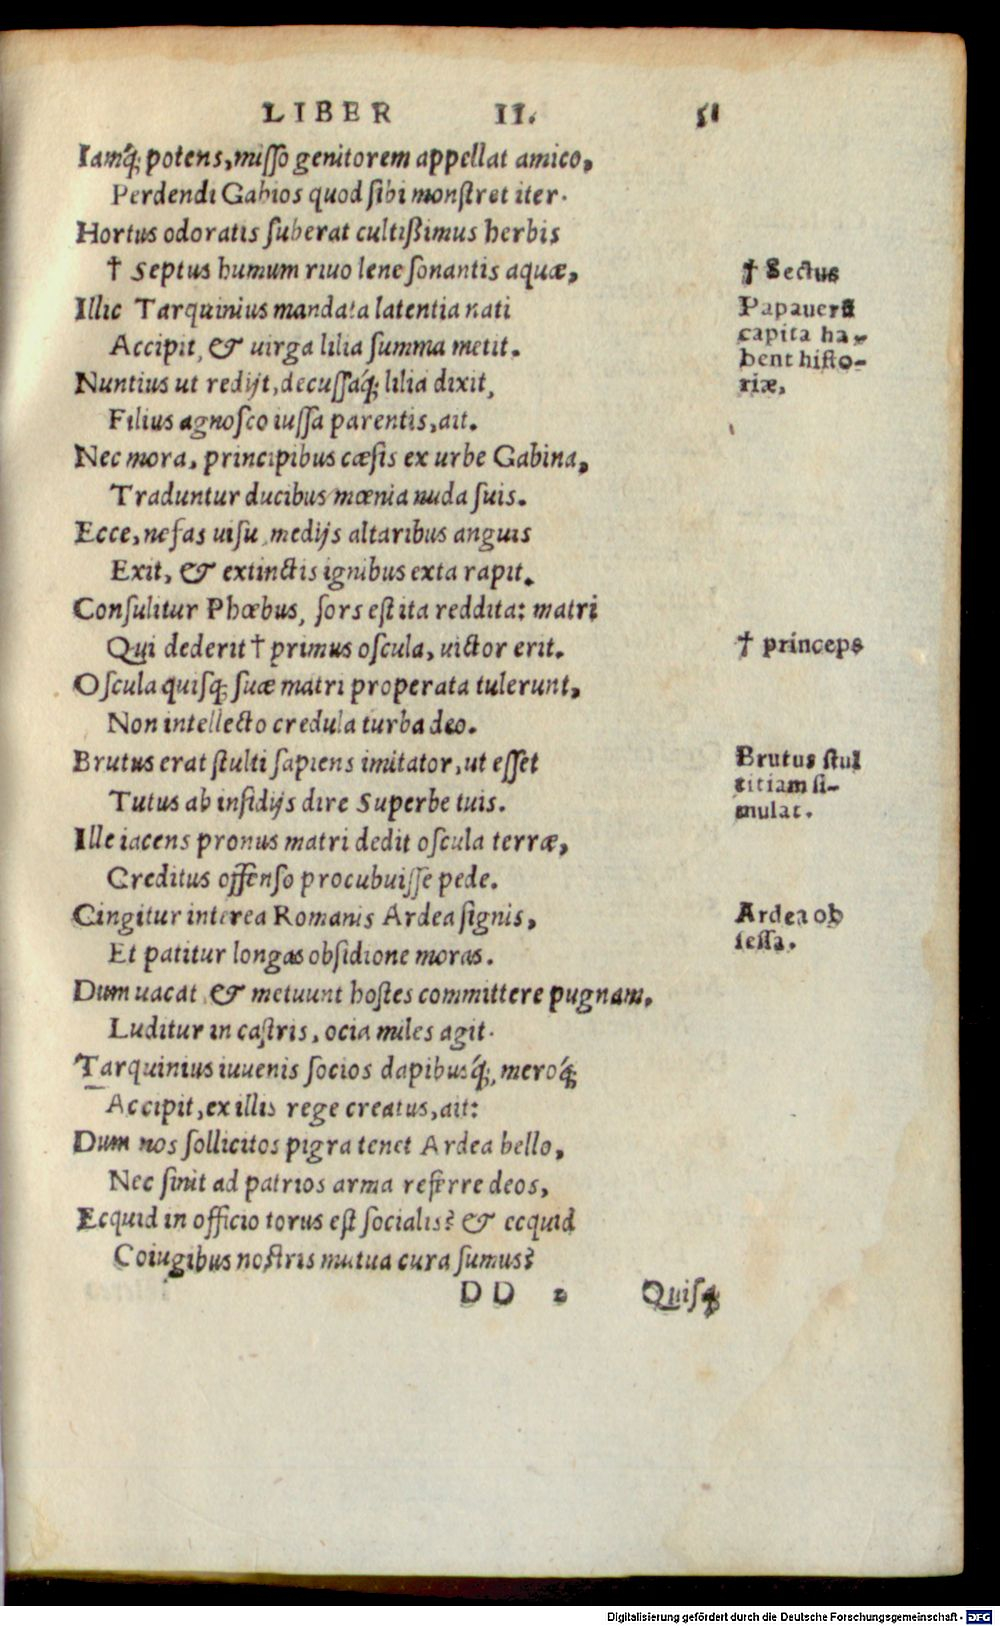 LIBER II. 51
Iamq́; potens, misso genitorem appellat amico,
Perdendi Gabios quod sibi monstret iter.
Hortus odoratis suberat cultißimus herbis
† Septus humum riuo lene sonantis aquæ,
† Sectus
Illic Tarquinius mandata latentia nati
Accipit, & uirga lilia summa metit.
Papauera
capita ha-
bent histo-
riæ,
Nuntius ut redijt, decussaq́; lilia dixit,
Filius agnosco iussa parentis, ait.
Nec mora, principibus cæsis ex urbe Gabina,
Traduntur ducibus mœnia nuda suis.
Ecce, nefas uisu, medijs altaribus anguis
Exit, & extinctis ignibus exta rapit.
Consulitur Phœbus, sors est ita reddita: matri
Qui dederit † primus oscula, uictor erit.
† princeps
Oscula quisq; suæ matri properata tulerunt,
Non intellecto credula turba deo.
Brutus erat stulti sapiens imitator, ut esset
Tutus ab insidijs dire Superbe tuis.
Brutus stul
titiam si-
mulat.
Ille iacens pronus matri dedit oscula terræ,
Creditus offenso procubuisse pede.
Cingitur interea Romanis Ardea signis,
Et patitur longas obsidione moras.
Ardea ob
sessa.
Dum uacat & metuunt hostes committere pugnam,
Luditur in castris, ocia miles agit.
Tarquinius iuuenis socios dapibusq́;, meroq́;
Accipit, ex illis rege creatus, ait:
Dum nos sollicitos pigra tenet Ardea bello,
Nec sinit ad patrios arma referre deos,
Ecquid in officio torus est socialis? & ecquid
Coiugibus nostris mutua cura sumus?
DD 2 Quisq;
Digitalisierung gefördert durch die Deutsche Forschungsgemeinschaft - DFG